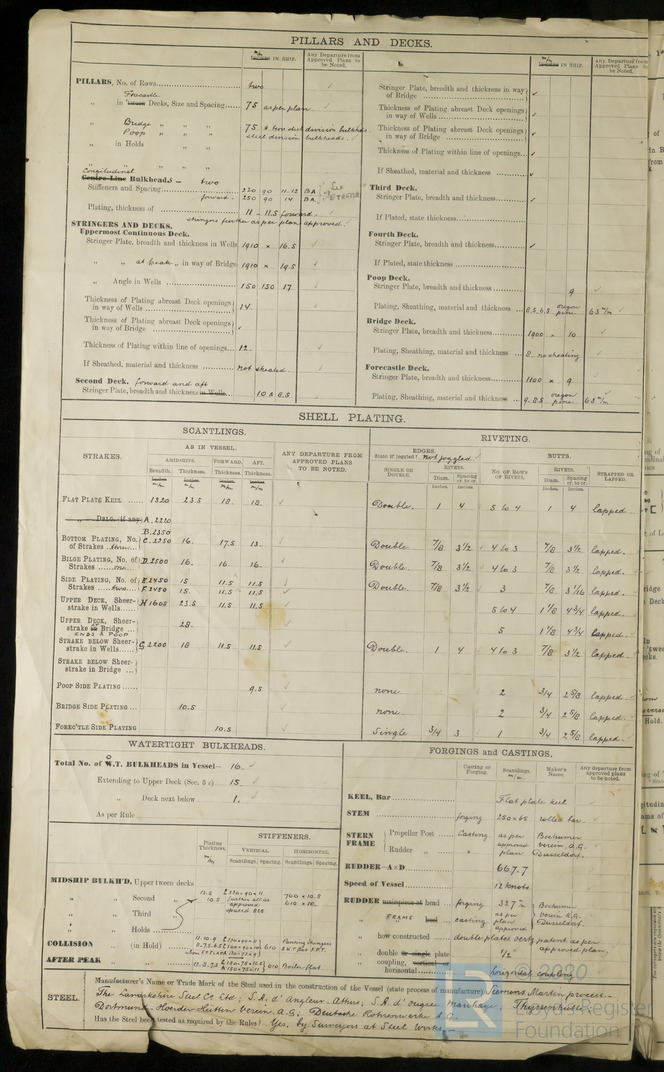 PILLARS AND DECKS.
IN SHIP.
Any Departure from Approved Plans to be Noted.
PILLARS, No. of Rows
two
Forecastle
" in Decks, Size and Spacing
75 as per plan
" Bridge " "
Poop
75. & two steel division bulkheads
steel division bulkheads.
" in Holds "
Longitudinal
Centre Line Bulkheads – two
Stiffeners and Spacing
220 90 11.12 BA
forward. 250 90 14 BA
Plating, thickness of
11 – 11.5 forward.
stringers further as per plan approved.
STRINGERS AND DECKS.
Uppermost Continuous Deck.
Stringer Plate, breadth and thickness in Wells
1910 x 16.5
" " in way of Bridge
1910 x 19.5
" Angle in Wells
150 150 17
Thickness of Plating abreast Deck openings in way of Wells
14.
Thickness of Plating abreast Deck openings in way of Bridge
Thickness of Plating within line of openings
12
If Sheathed, material and thickness
not sheated.
Second Deck. forward and aft
Stringer Plate, breadth and thickness in Wells
10.5 8.5
IN SHIP.
Any Departure from Approved Plans to be Noted.
Stringer Plate, breadth and thickness in way of Bridge
Thickness of Plating abreast Deck openings in way of Wells
Thickness of Plating abreast Deck openings in way of Bridge
Thickness of Plating within line of openings
If Sheathed, material and thickness
Third Deck.
Stringer Plate, breadth and thickness
If Plated, state thickness
Fourth Deck.
Stringer Plate, breadth and thickness
If Plated, state thickness
Poop Deck.
Stringer Plate, breadth and thickness
9
Plating, Sheathing, material and thickness
8.5. 6.5 oregon pine 63 m/m
Bridge Deck.
Stringer Plate, breadth and thickness
1900 x 10
Plating, Sheathing, material and thickness
8. no sheating
Forecastle Deck.
Stringer Plate, breadth and thickness
1100 x 9
Plating, Sheathing, material and thickness
9. 8.5 oregon pine 63 m/m
SHELL PLATING.
SCANTLINGS.
RIVETING.
STRAKES.
AS IN VESSEL.
AMIDSHIPS.
FORWARD.
AFT.
Breadth.
Thickness.
Thickness.
Thickness.
ANY DEPARTURE FROM APPROVED PLANS TO BE NOTED.
EDGES.
State if joggled? Not joggled.
BUTTS.
SINGLE OR DOUBLE.
RIVETS.
Diam.
Spacing cr. to cr.
NO. OF ROWS OF RIVETS.
RIVETS.
Diam.
Spacing cr. to cr.
STRAPPED OR LAPPED.
FLAT PLATE KEEL
1320 23.5 18 18. Double. 1 4 5 to 4 1 4 lapped.
DBLG. (if any)
A. 2220
B. 2350
BOTTOM PLATING, No. of Strakes three
C. 2250 16. 17.5 13. Double. 7/8 3 1/2 4 to 3 7/8 3 1/2 lapped.
BILGE PLATING, No. of Strakes one
D. 2500 16. 16. 16. Double. 7/8 3 1/2 4 to 3 7/8 3 1/2 lapped.
SIDE PLATING, No. of Strakes two
E. 2450 15 11.5 11.5
F. 2450 15. 11.5 11.5. Double. 7/8 3 1/2 3 7/8 3 1/16 lapped.
UPPER DECK, Sheerstrake in Wells
H 1605 23.5 11.5 11.5. 5 to 4 1 1/8 4 3/4 lapped.
UPPER DECK, Sheerstrake in Bridge
ENDS & POOP
28. 5 1 1/8 4 3/4 lapped.
STRAKE BELOW Sheerstrake in Wells
G. 2200 18 11.5 11.5 Double. 1 4 4 to 3 7/8 3 1/2 lapped.
STRAKE BELOW Sheerstrake in Bridge
POOP SIDE PLATING
9.5 none. 2 3/4 2 5/8 lapped.
BRIDGE SIDE PLATING
10.5 none. 2 3/4 2 5/8 lapped.
FORE'C'TLE SIDE PLATING
10.5 Single 3/4 3 1 3/4 2 5/8 lapped.
WATERTIGHT BULKHEADS.
Total No. of W.T. BULKHEADS in Vessel— 16.
Extending to Upper Deck (Sec. 3 c) 15.
" Deck next below 1.
As per Rule
Plating Thickness.
STIFFENERS.
VERTICAL
HORIZONTAL
Scantlings.
Spacing.
Scantlings.
Spacing.
MIDSHIP BULKH'D, Upper tween decks
" " Second "
" " Third "
" " Holds
700 x 10.5
COLLISION " (in Hold)
AFTER PEAK " "
FORGINGS AND CASTINGS.
Casting or Forging.
Scantlings.
Maker's Name.
Any departure from approved plans to be noted.
KEEL, Bar
Flat plate keel
STEM
forging 250 x 65 rolled bar.
STERN FRAME
Propeller Post
Casting as per approved plan
Bochumer verein A.G. Düsseldorf.
Rudder "
RUDDER—A × D
667.7
Speed of Vessel
12 knots
RUDDER mainpiece at head
forging 327 m/m Bochumer verein A.G. Düsseldorf.
" FRAME heel
casting as per plan approved
" how constructed
double plates
as per approved plan.
" double or single plate
1/2"
" coupling, vertical or horizontal
horizontal coupling
STEEL.
Manufacturer's Name or Trade Mark of the Steel used in the construction of the Vessel (state process of manufacture) Siemens Martin process.
The Lanarkshire Steel Co Ltd; S.A. d'Angleur-Athus, S.A. d'ougrée Marihaye, Thyssenhütte.
Dortmund-Hoerder-Hütten verein A.G. Deutsche Röhrenwerke A.G.
Has the Steel been tested as required by the Rules? Yes, by Surveyors at Steel Works.
© 2020
Lloyd's Register
Foundation
LR